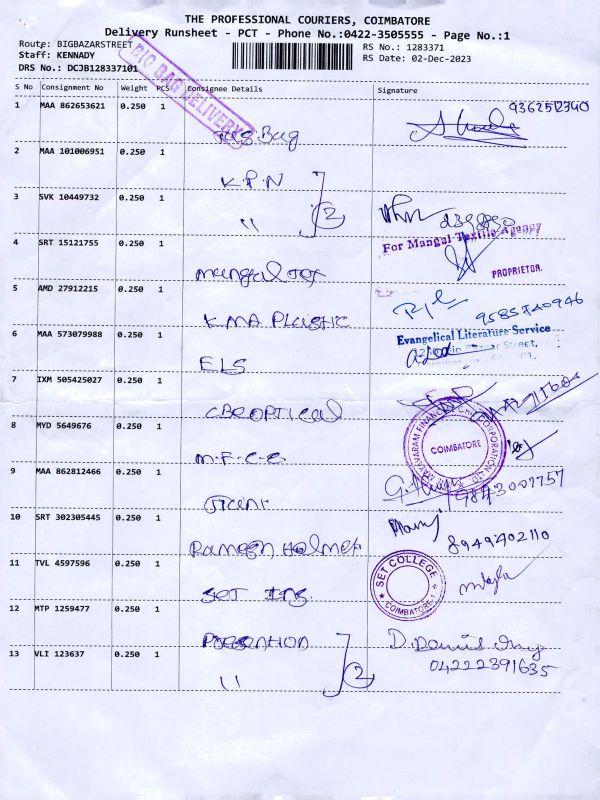 THE PROFESSIONAL COURIERS, COIMBATORE
Delivery Runsheet - PCT - Phone No.:0422-3505555 - Page No.:1
Route: BIGBAZARSTREET
RS No.: 1283371
Staff: KENNADY
RS Date: 02-Dec-2023
DRS No.: DCJB128337101
BIG BAG DELIVERY
S No Consignment No Weight PCS Consignee Details Signature
1 MAA 862653621 0.250 1
Bag
2 MAA 101006951 0.250 1
K.P.N
3 SVK 10449732 0.250 1
" 2
For Mangal Textile Agency
PROPRIETOR.
4 SRT 15121755 0.250 1
mangal Tex
5 AMD 27912215 0.250 1
KMA Plastic
9585740946
Evangelical Literature Service
Street,
6 MAA 573079988 0.250 1
ELS
7 IXM 505425027 0.250 1
OPTICAL
8 MYD 5649676 0.250 1
M.F.C.C
MAYAVARAM FINANCIAL CHIT CORPORATION LTD.
COIMBATORE
9 MAA 862812466 0.250 1
10 SRT 302305445 0.250 1
Ramesh Helmet
8949402110
11 TVL 4597596 0.250 1
SET Ins.
SET COLLEGE
COIMBATORE-1
12 MTP 1259477 0.250 1
13 VLI 123637 0.250 1
" 2
04222391635